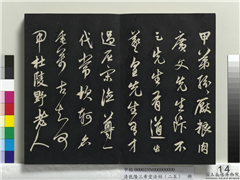 甲第紛厭粱肉
廣文先生飯不
足先生有道出
羲皇先生有才
過屈宋德尊一
代常坎軻名
垂萬古知何
用杜陵野老人
14